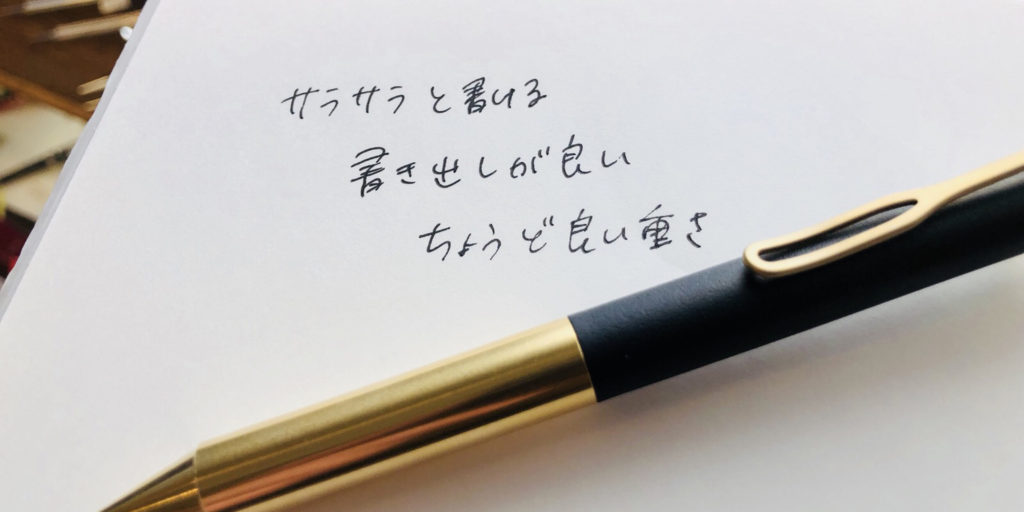 サラサラと書ける
書き出しが良い
ちょうど良い重さ